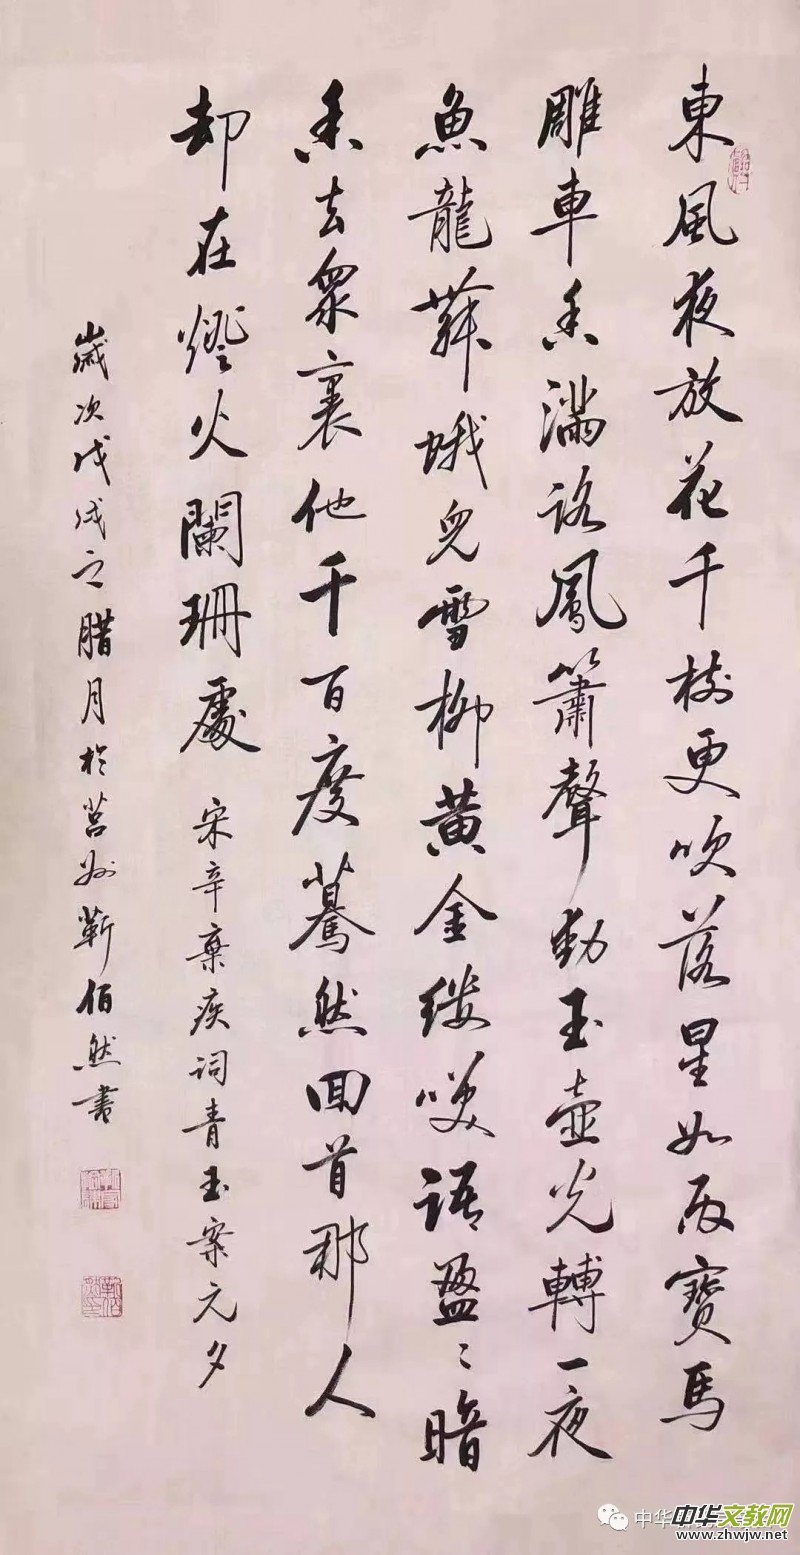 東風夜放花千樹更吹落星如雨寶馬
雕車香滿路鳳簫聲動玉壺光轉一夜
魚龍舞蛾兒雪柳黃金縷笑語盈盈暗
香去眾裏他千百度驀然回首那人
却在燈火闌珊處 宋辛棄疾詞青玉案元夕
歲次戊戌之腊月於莒州靳佰然書
中华
中华文教网
www.zhwjw.net